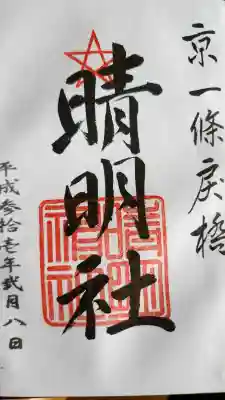 京一條戻橋
晴明社
平成参拾壱年弐月八日